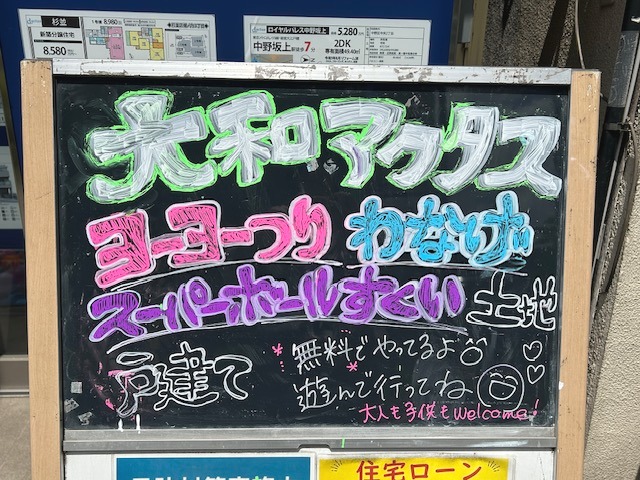 杉並
新築分譲住宅
8,580
1号棟 8,980
ロイヤルパレス中野坂上 5,280
中野坂上 駅徒歩7分 2DK
専有面積49.40㎡
大和アクタス
ヨーヨーつり わなげ
スーパーボールすくい 土地
戸建て
無料でやってるよ
遊んで行ってね
大人も子供もwelcome!
住宅ローン